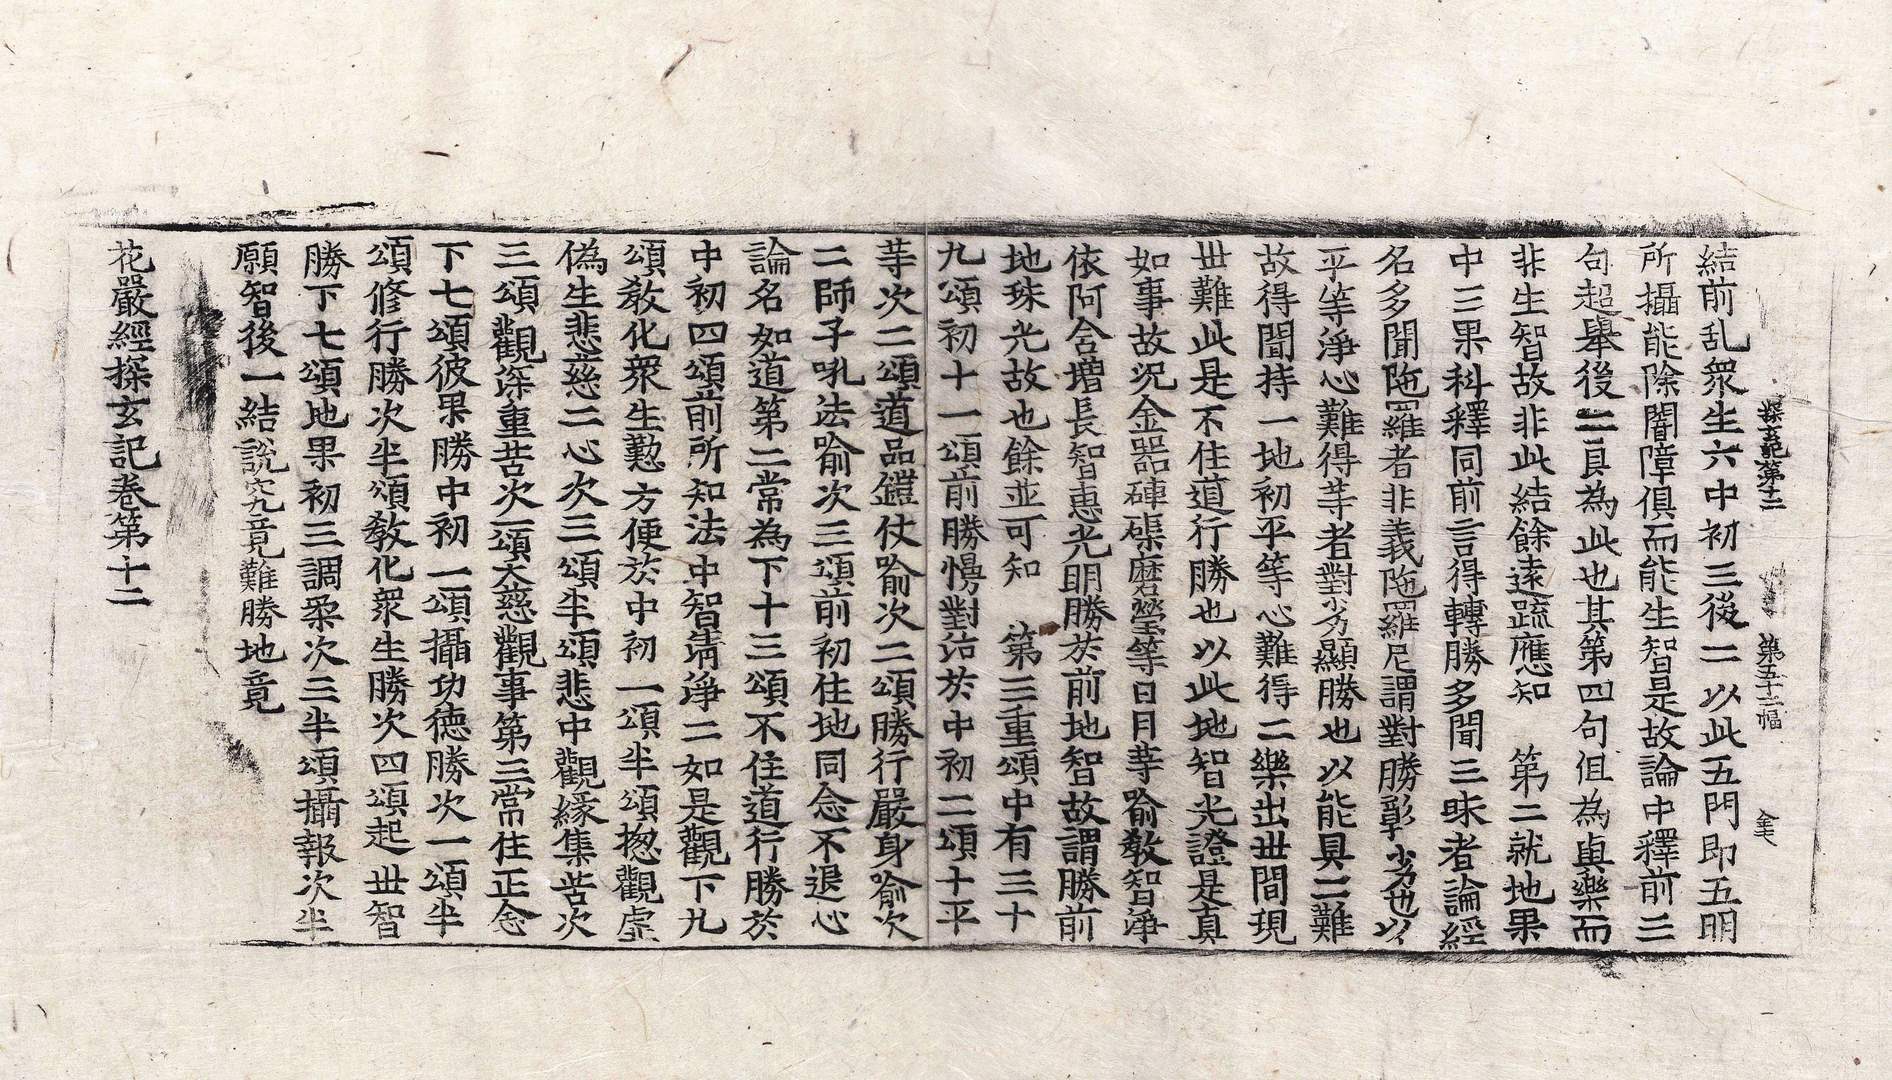 探玄記第十二 第五十二幅 金天
結前乱衆生六中初三後二以此五門即五明
所攝能除闇障俱而能生智是故論中釋前三
句超舉後二員為此也其第四句但為與樂而
非生智故非此結餘遠䟽應知 第二就地果
中三果科釋同前言得轉勝多聞三昧者論經
名多聞陁羅者非義陁羅尼謂對勝彰劣也以
平等淨心難得等者對劣顯勝也以能具二難
故得聞持一地初平等心難得二樂出世間現
世難此是不住道行勝也以此地智光證是真
如事故況金器硨磲磨瑩等日月等喻教智淨
依阿含增長智惠光明勝於前地智故謂勝前
地珠光故也餘並可知 第三重頌中有三十
九頌初十一頌前勝慢對治於中初二頌十平
等次二頌道品鎧仗喻次二頌勝行嚴身喻次
二師子吼法喻次三頌前初住地同念不退心
論名如道第二常為下十三頌不住道行勝於
中初四頌前所知法中智清淨二如是觀下九
頌教化衆生懃方便於中初一頌半頌揔觀虛
偽生悲慈二心次三頌半頌悲中觀緣集苦次
三頌觀深重苦次一頌大慈觀事第三常住正念
下七頌彼果勝中初一頌攝功德勝次一頌半
頌修行勝次半頌教化衆生勝次四頌起世智
勝下七頌地果初三調柔次三半頌攝報次半
願智後一結說究竟難勝地竟
花嚴經探玄記卷第十二